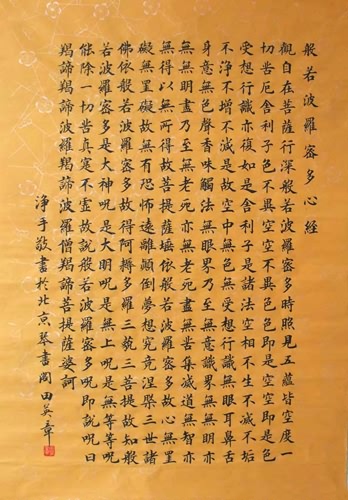 般若波羅蜜多心經
觀自在菩薩行深般若波羅蜜多時照見五蘊皆空度一
切苦厄舍利子色不異空空不異色色即是空空即是色
受想行識亦復如是舍利子是諸法空相不生不滅不垢
不淨不增不減是故空中無色無受想行識無眼耳鼻舌
身意無色聲香味觸法無眼界乃至無意識界無無明亦
無無明盡乃至無老死亦無老死盡無苦集滅道無智亦
無得以無所得故菩提薩埵依般若波羅蜜多故心無罣
礙無罣礙故無有恐怖遠離顛倒夢想究竟涅槃三世諸
佛依般若波羅蜜多故得阿耨多羅三藐三菩提故知般
若波羅蜜多是大神咒是大明咒是無上咒是無等等咒
能除一切苦真實不虛故說般若波羅蜜多咒即說咒曰
羯諦羯諦波羅羯諦波羅僧羯諦菩提薩婆訶
淨手敬書於北京琴書閣田英章